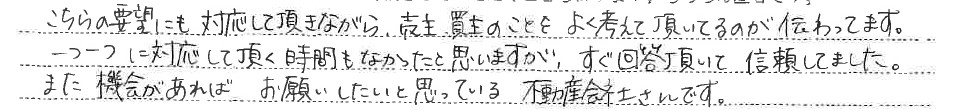 こちらの要望にも対応して頂きながら、売主、買主のことをよく考えて頂いてるのが伝わってます。
一つ一つに対応して頂く時間もなかったと思いますが、すぐ回答頂いて信頼してました。
また機会があればお願いしたいと思っている不動産会社さんです。